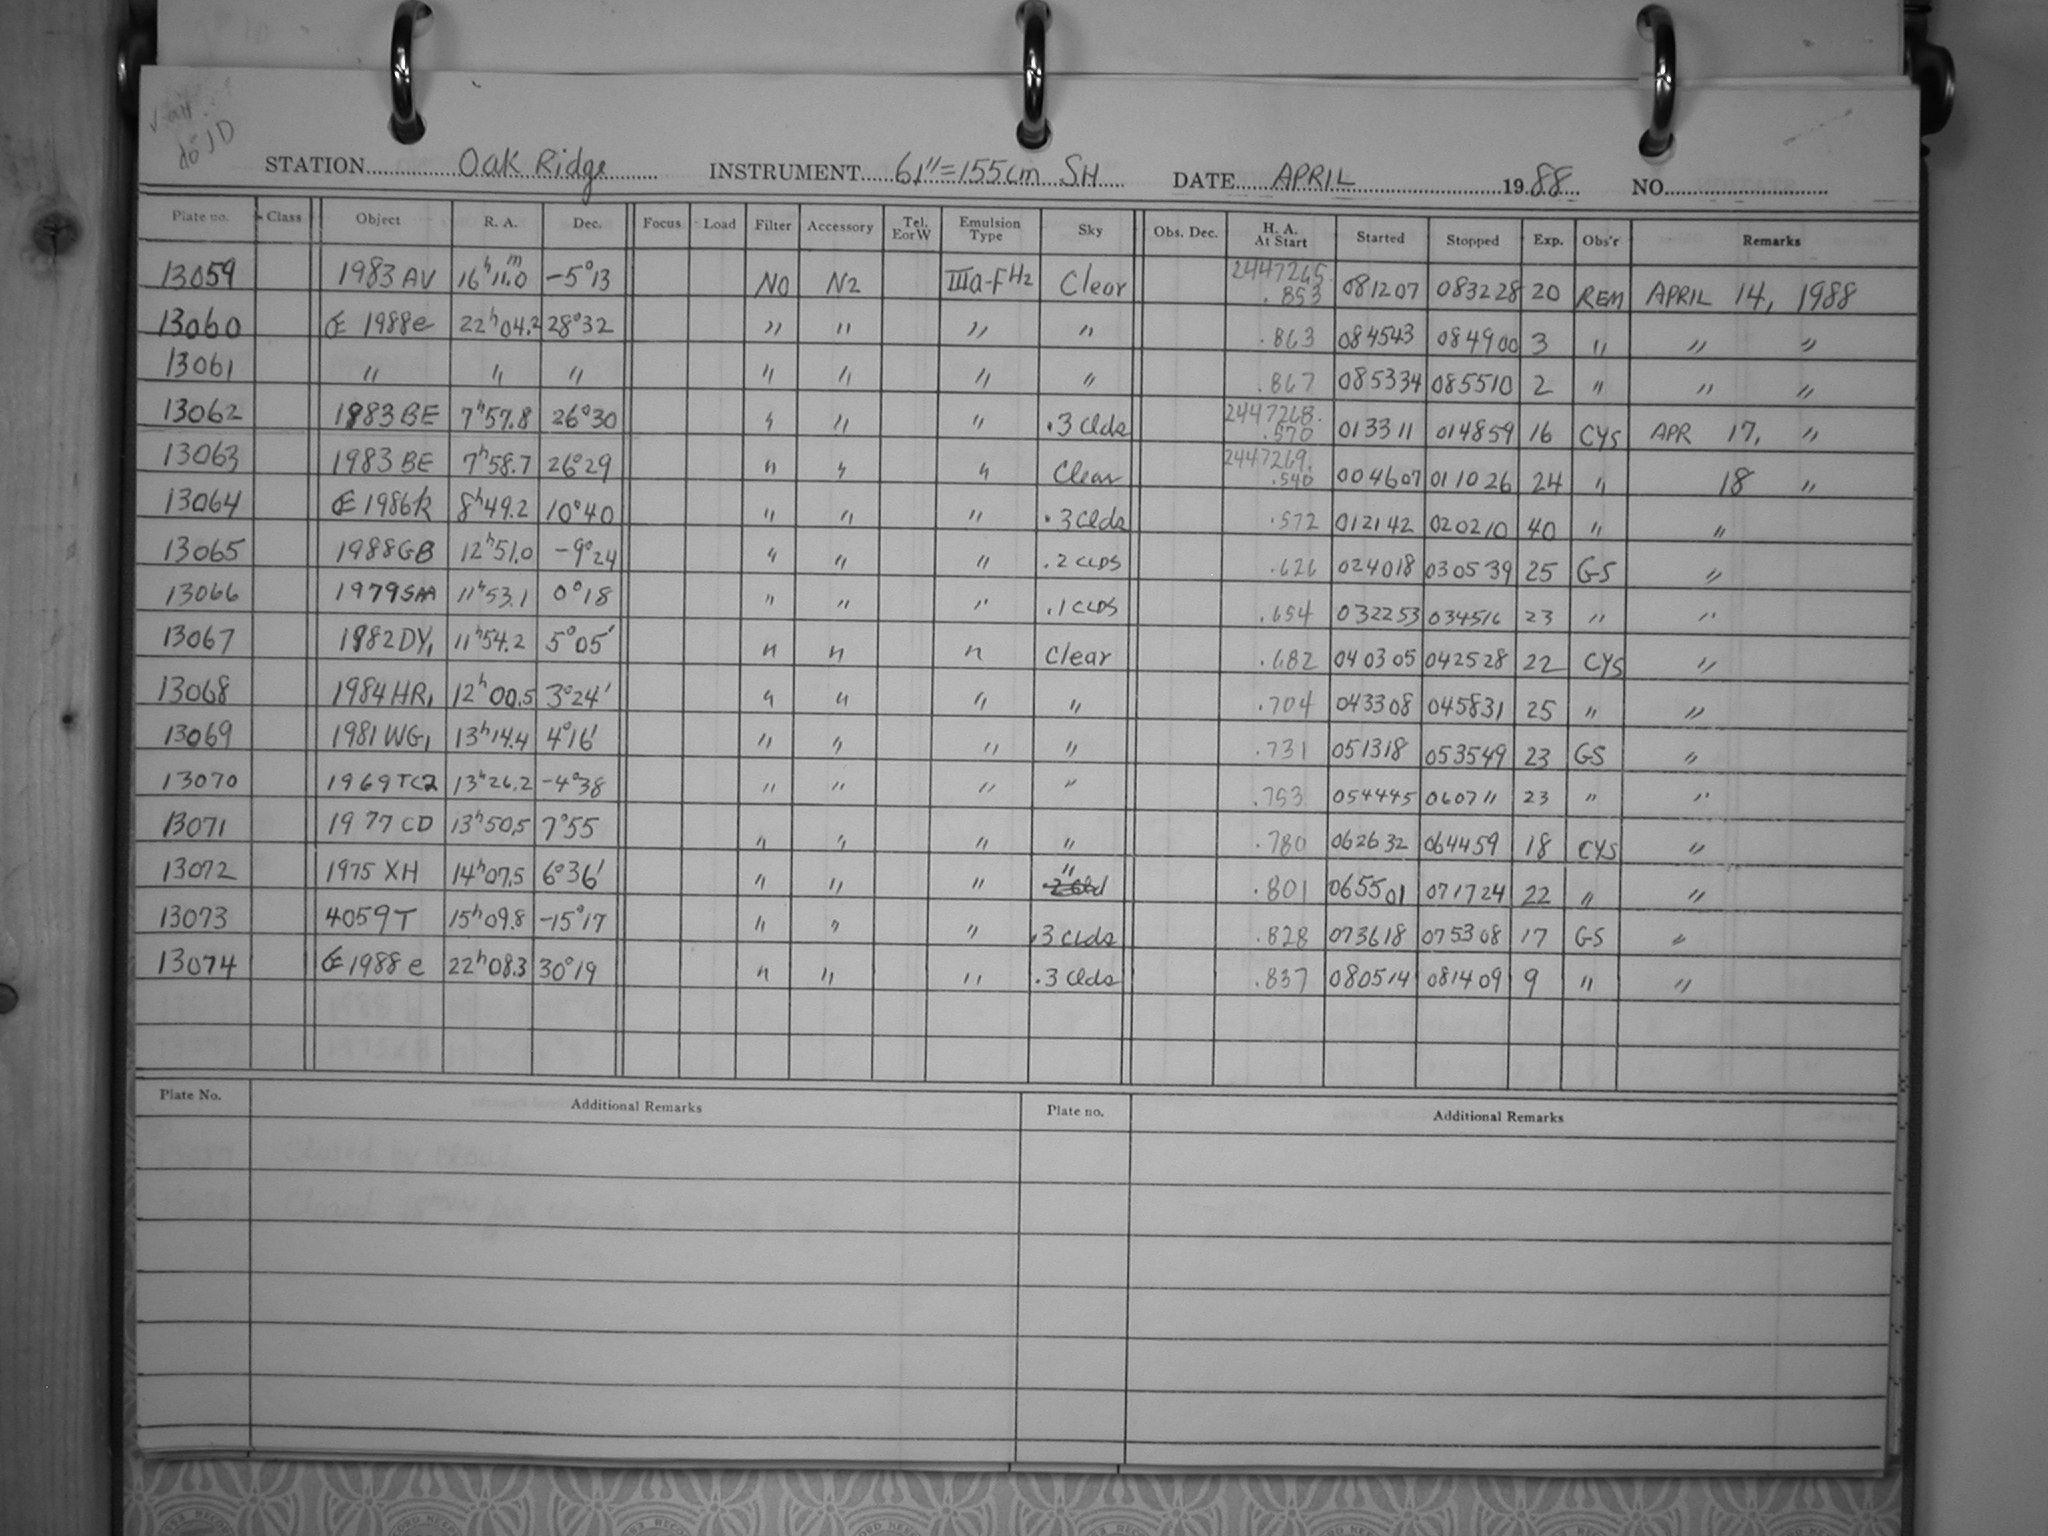 do JD
STATION Oak Ridge INSTRUMENT 61"=155cm SH DATE APRIL 1988 NO.
Plate no. Class Object R. A. Dec. Focus Load Filter Accessory Tel. E or W Emulsion Type Sky Obs. Dec. H. A. At Start Started Stopped Exp. Obs'r Remarks
13059 1983 AV 16h11.0m -5°13 NO N2 IIIa-F H2 Clear 2447265. .853 081207 083228 20 REM APRIL 14, 1988
13060 1988e 22h04.2 28°32 " " " " .863 084543 084900 3 " " "
13061 " " " " " " " .867 085334 085510 2 " " "
13062 1983 BE 7h57.8 26°30 " " " .3 Clds 2447268. .570 013311 014859 16 CYS APR 17, "
13063 1983 BE 7h58.7 26°29 " " " Clear 2447269. .540 004607 011026 24 " 18 "
13064 1986k 8h49.2 10°40 " " " .3 Clds .572 012142 020210 40 " "
13065 1988GB 12h51.0 -9°24 " " " .2 CLDS .626 024018 030539 25 GS "
13066 1979SAA 11h53.1 0°18 " " " .1 CLDS .654 032253 034516 23 " "
13067 1982DY1 11h54.2 5°05' " " " Clear .682 040305 042528 22 CYS "
13068 1984 HR1 12h00.5 3°24' " " " " .704 043308 045831 25 " "
13069 1981 WG1 13h14.4 4°16' " " " " .731 051318 053549 23 GS "
13070 1969 TC2 13h26.2 -4°38 " " " " .753 054445 060711 23 " "
13071 1977 CD 13h50.5 7°55 " " " " .780 062632 064459 18 CYS "
13072 1975 XH 14h07.5 6°36' " " " " .801 065501 071724 22 " "
13073 4059T 15h09.8 -15°17 " " " .3 Clds .828 073618 075308 17 GS "
13074 1988e 22h08.3 30°19 " " " .3 Clds .837 080514 081409 9 " "
Plate No. Additional Remarks Plate no. Additional Remarks